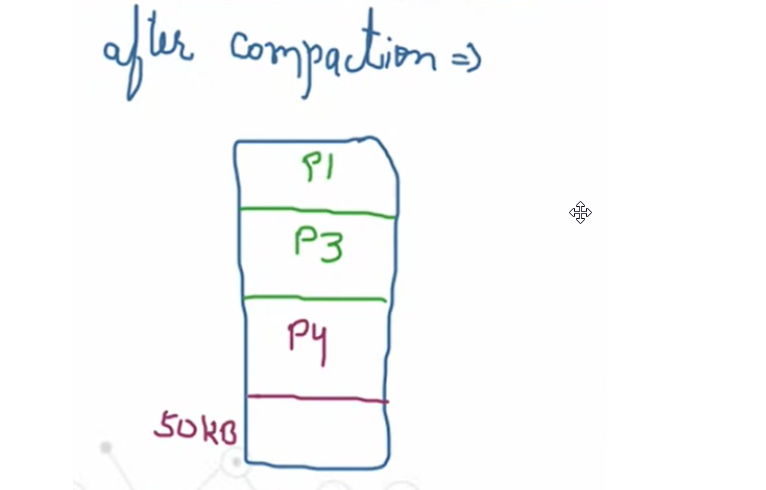 after compaction =>
P1
P3
P4
50KB